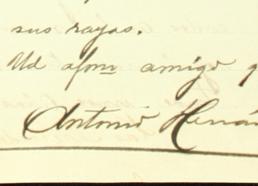 sus rayos.
Ud afom amigo q
Antonio Hernán